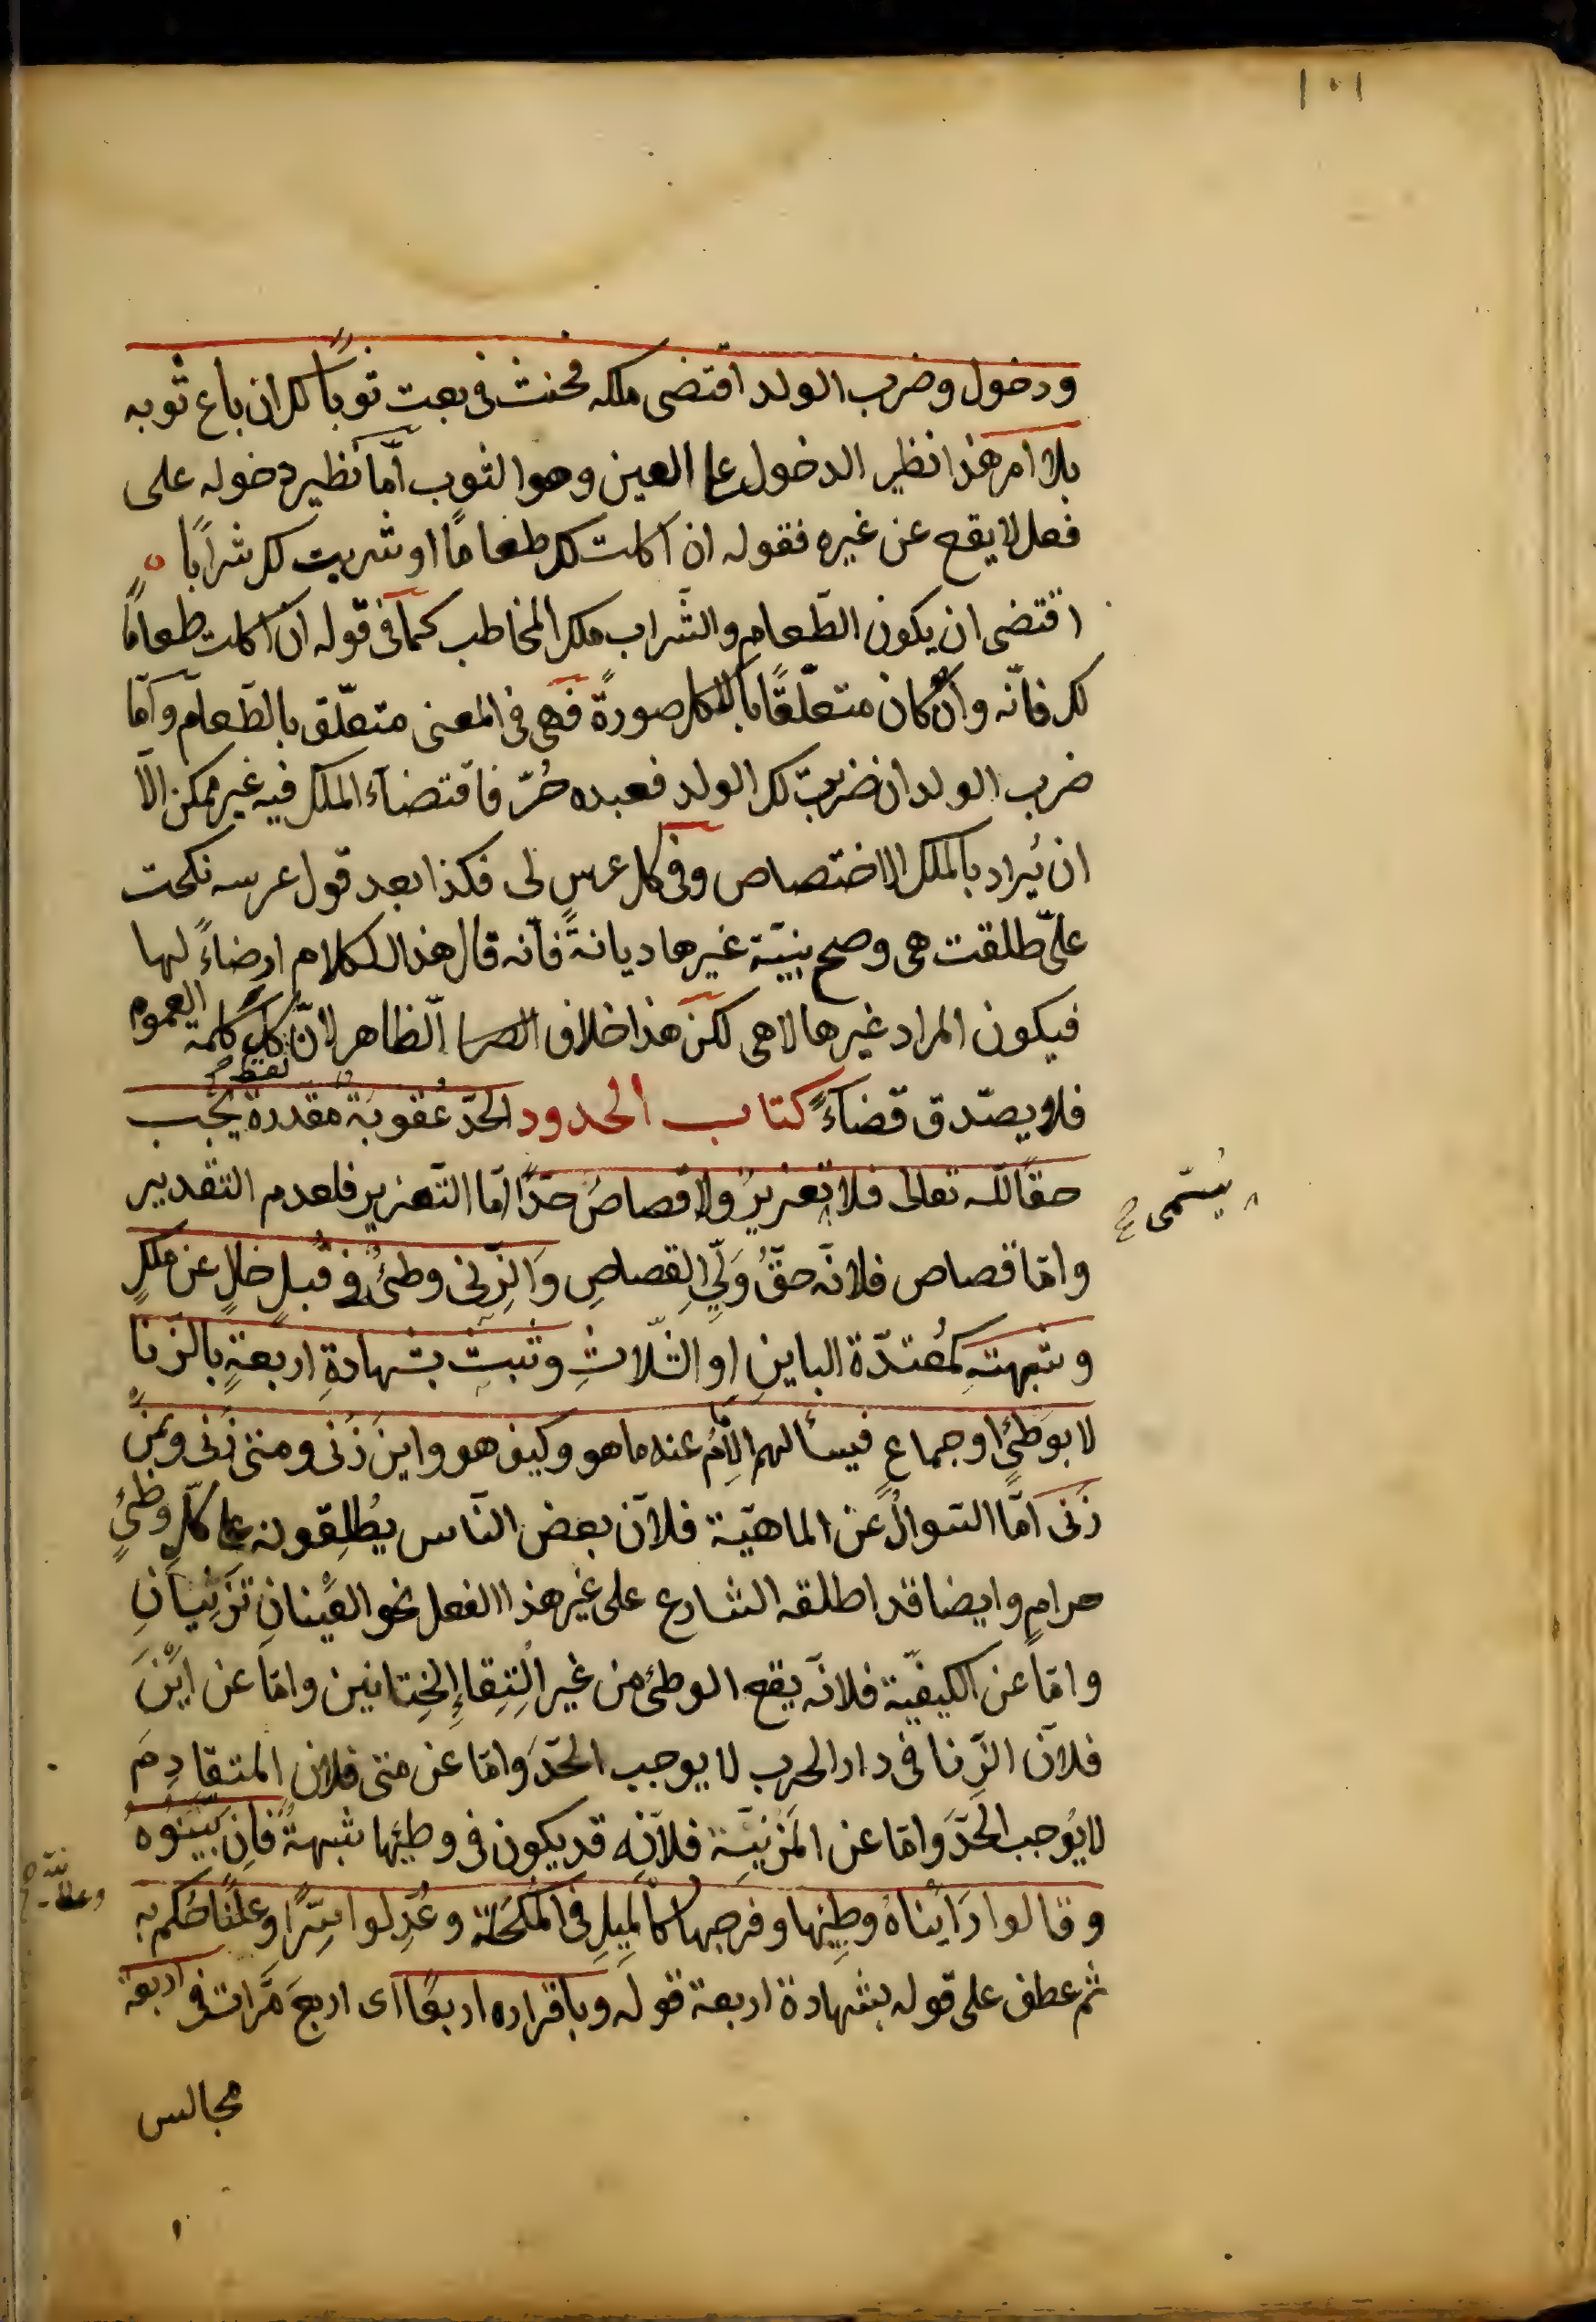 ١٠١
ودخول وضرب الولد اقتضى ملكه فحنث فى بعت ثوبًا لك ان باع ثوبه
بلا امر هذا نظير الدخول على العين وهو الثوب امّا نظير دخوله على
فعل لا يقع عن غيره فقوله ان اكلت لك طعامًا او شربت لك شرابًا
اقتضى ان يكون الطّعام والشّراب ملك المخاطب كما فى قوله ان اكلت طعامًا
لك فانّه وان كان متعلّقًا بالاكل صورةً فهى فى المعنى متعلّق بالطّعام وامّا
ضرب الولد ان ضربت لك الولد فعبده حُرّ فاقتضاء الملك فيه غير ممكن الّا
ان يُراد بالملك الاختصاص وفى كل عرسٍ لى فكذا بعد قول عرسه نكحت
علىّ طلقت هى وصح بنيّة غيرها ديانةً فانّه قال هذا الكلام ارضاءً لها
فيكون المراد غيرها لا هى لكن هذا خلاف الظاهر لانّ كل كلمة العموم
فلا يصدّق قضاءً كتاب الحدود الحدّ عُقوبةٌ مقدرةٌ يجب
حقًا لله تعالى فلا تعزيرٌ ولا قصاصٌ حدًّا امّا التّعزير فلعدم التقدير
يُسمّى
وامّا قصاص فلانّه حقُّ وَلِّي القصاصِ وَالزّنى وطئٌ فى قُبلٍ خالٍ عن ملكٍ
وشبهتهِ كمُعتدّة الباين او الثّلاثِ وتثبت بشهادةِ اربعةٍ بالزّنا
لا بوَطئٍ او جماعٍ فيسألهم الامام عنه ما هو وكيف هو واين زَنى ومتى زَنى وبمن
زَنى امّا السّوال عن الماهيّة فلانّ بعض النّاس يُطلِقونه على كلّ وطئٍ
حرامٍ وايضا قد اطلقه الشارع على غير هذا الفعل نحو العَينانِ تَزنِيانِ
وامّا عن الكيفيّة فلانّه يقع الوطئ من غير الْتِقاءِ الخِتانين وامّا عن اينَ
فلانّ الزّنا فى دار الحرب لا يوجب الحدّ وامّا عن متى فلان المتقادِمَ
لا يُوجب الحدّ وامّا عن المَزنيّة فلانّه قد يكون فى وطيِها شبهةٌ فان بيّنُوهُ
وقالوا رَايْناهُ وطِيَها وفرجها كالمِيلِ فى المكحَلة وعُدِّلوا سِرًّا وعلنًا حُكم به
ثم عطف على قوله بشهادة اربعة قوله وباقراره اربعًا اى اربعَ مَرّات فى اربعة
مجالس